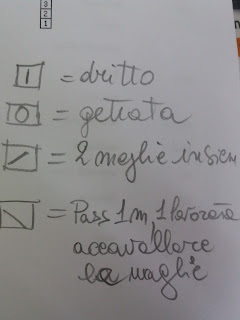 3
2
1
| = dritto
O = gettata
/ = 2 maglie insiem
\ = Pass 1 m, 1 lavorata
accavallare
la maglie